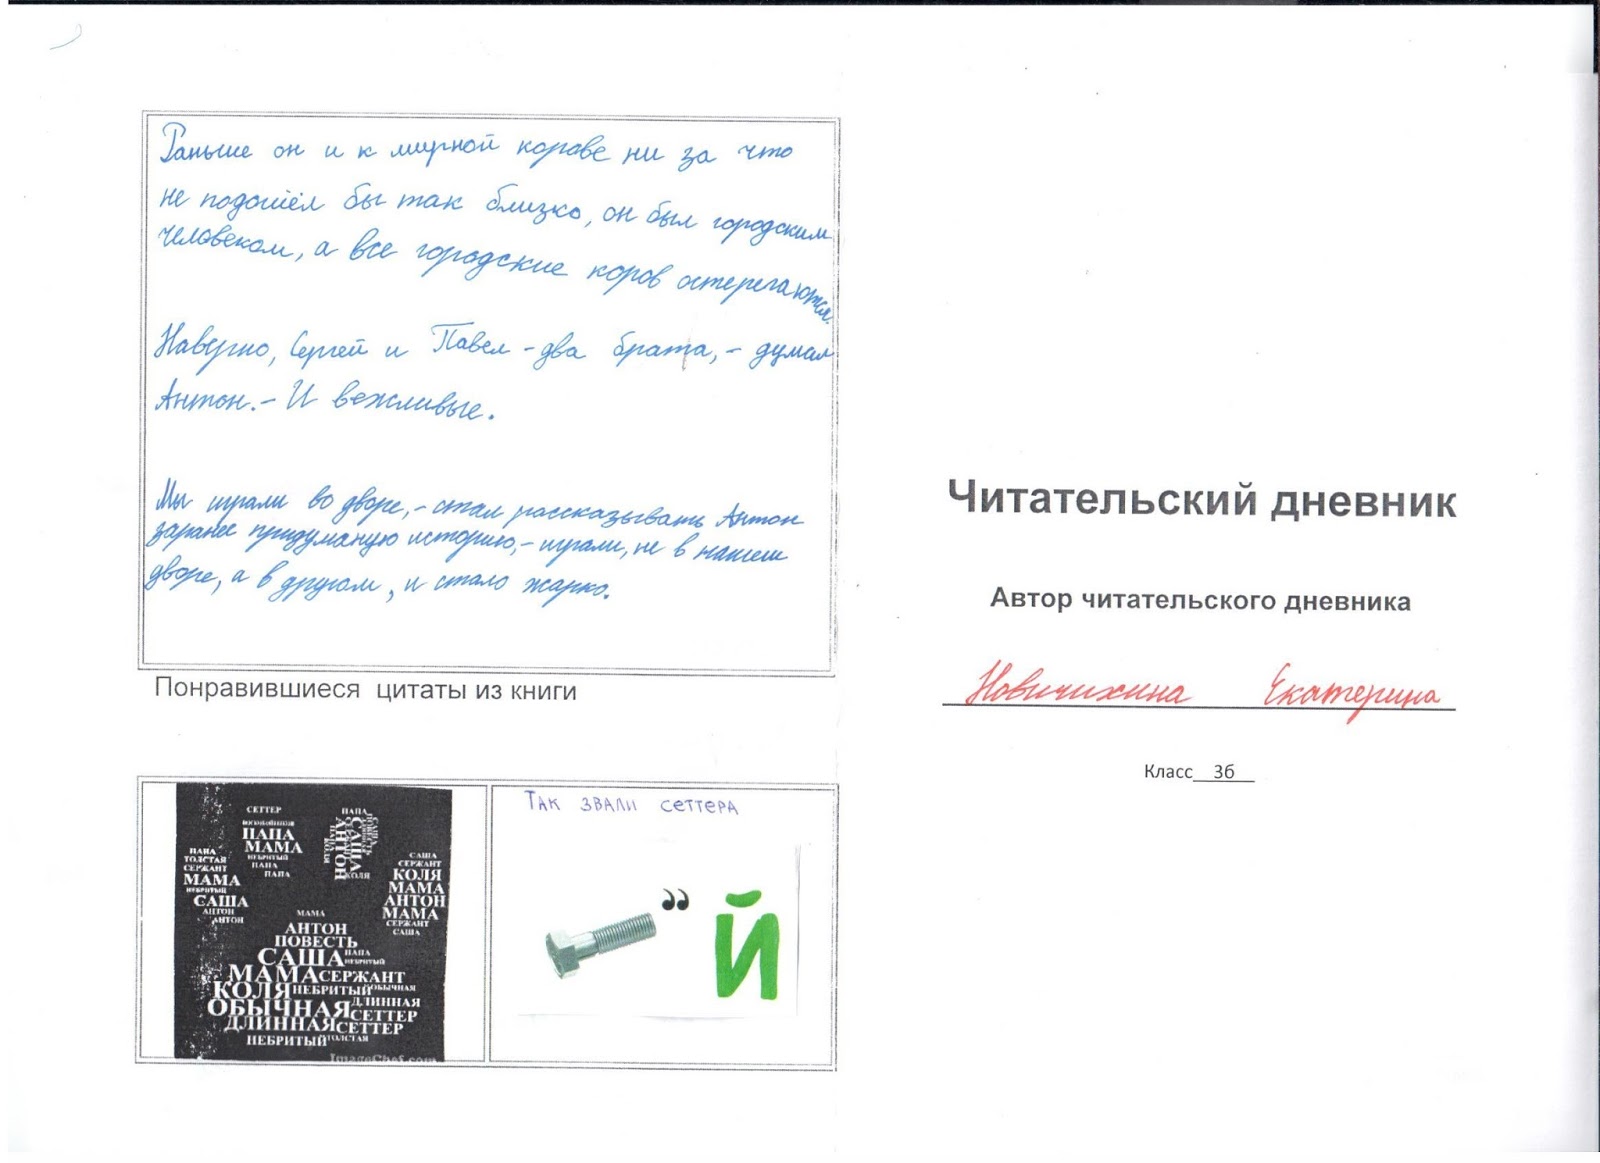 Раньше он и к мирной корове ни за что
не подошёл бы так близко, он был городским
человеком, а все городские коров остерегаются.
Наверно, Сергей и Павел – два брата, – думал
Антон. – И вежливые.
Мы играли во дворе, – стал рассказывать Антон
заранее придуманую историю, – играли, не в нашем
дворе, а в другом, и стало жарко.
Понравившиеся цитаты из книги
СЕТТЕР
ПАПА
МАМА
НЕБРИТЫЙ
ПАПА
ПАПА
ПАПА
САША
АНТОН
КОЛЯ
КОЛЯ
ПАПА
ТОЛСТАЯ
СЕРЖАНТ
МАМА
НЕБРИТЫЙ
САША
АНТОН
АНТОН
САША
СЕРЖАНТ
КОЛЯ
МАМА
АНТОН
МАМА
СЕРЖАНТ
САША
МАМА
АНТОН
ПОВЕСТЬ
САША ПАПА
НЕБРИТЫЙ
МАМА СЕРЖАНТ
КОЛЯ НЕБРИТЫЙ ОБЫЧНАЯ
ОБЫЧНАЯ ДЛИННАЯ
СЕТТЕР
ДЛИННАЯ СЕТТЕР
НЕБРИТЫЙ ТОЛСТАЯ
ImageChef.com
ТАК ЗВАЛИ СЕТТЕРА
,, Й
Читательский дневник
Автор читательского дневника
Новичихина Екатерина
Класс 3б